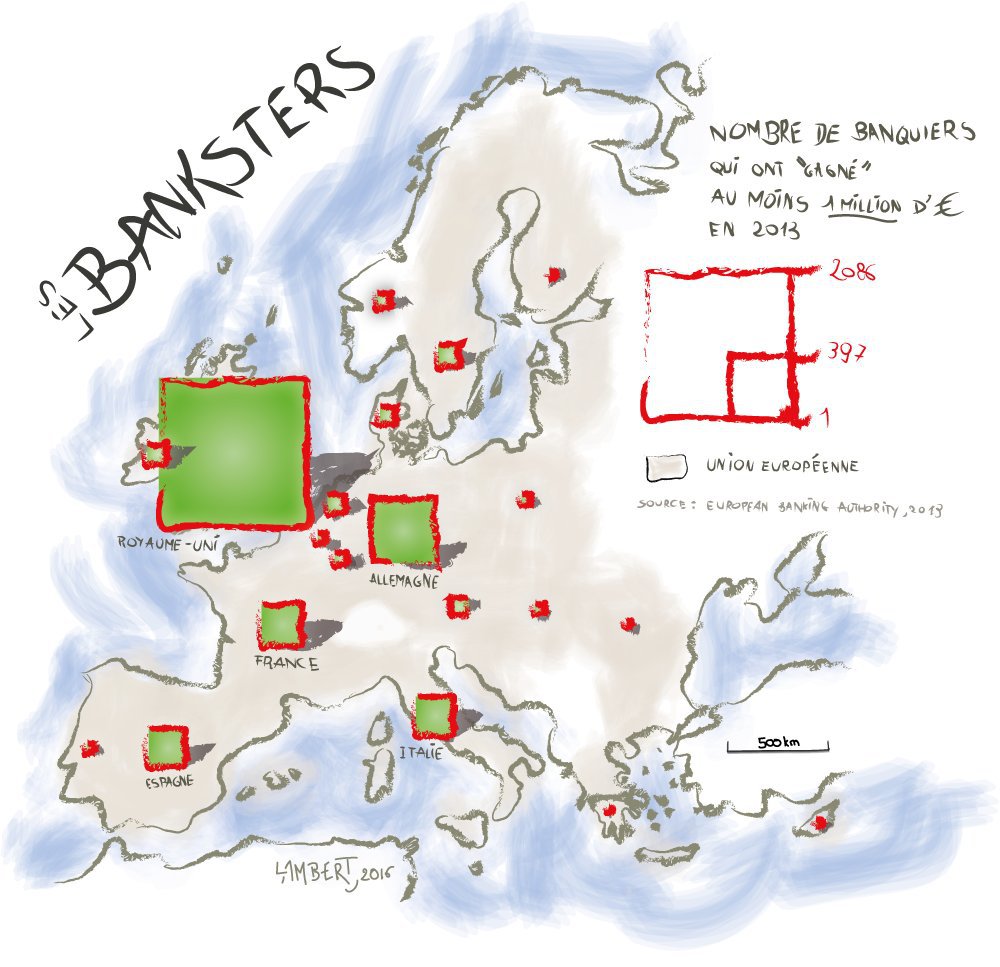 LES BANKSTERS
NOMBRE DE BANQUIERS
QUI ONT "GAGNÉ"
AU MOINS 1 MILLION D'€
EN 2013
2086
397
1
UNION EUROPÉENNE
SOURCE : EUROPEAN BANKING AUTHORITY, 2013
ROYAUME-UNI
ALLEMAGNE
FRANCE
ITALIE
ESPAGNE
500 km
LAMBERT, 2016